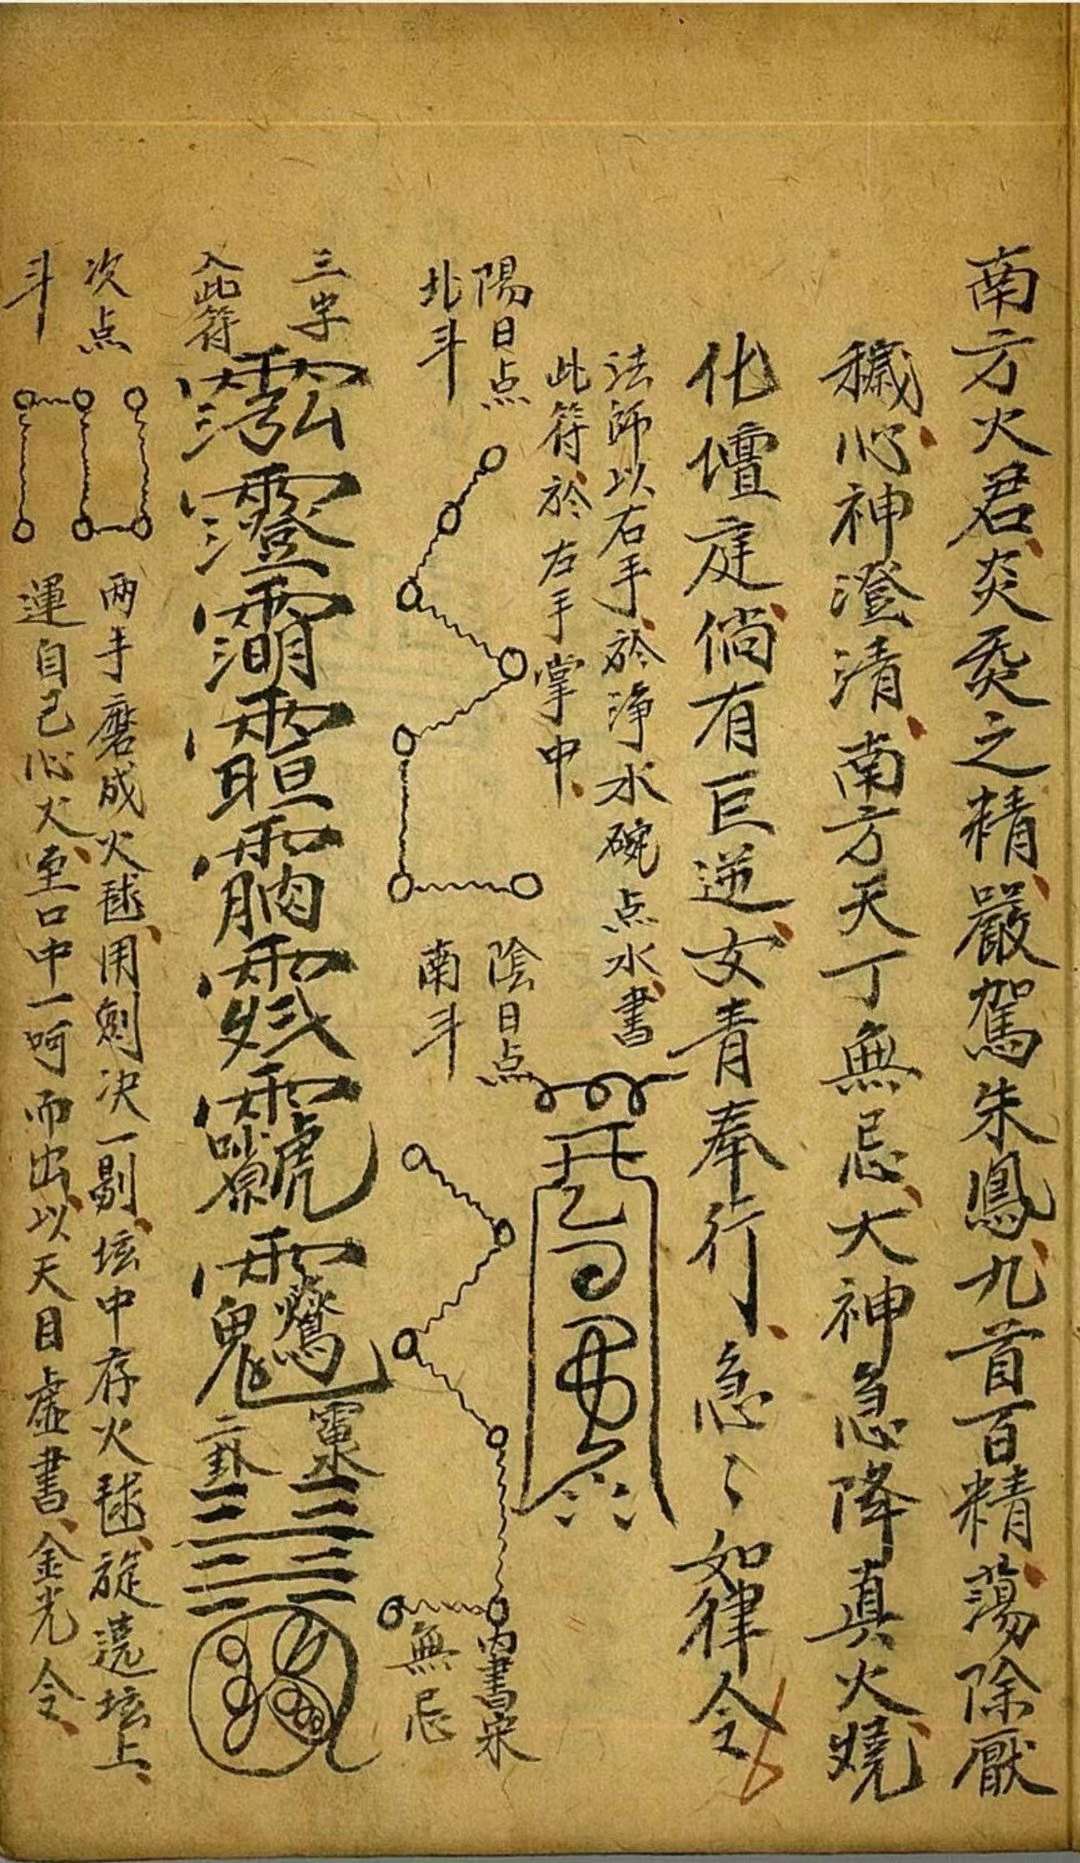 南方火君、炎烎之精、嚴駕朱鳳、九首百精、蕩除厭
穢、心神澄清、南方天丁、無忌大神、急降真火、燒
化壇庭、倘有巨逆、女青奉行、急〻如律令
法師以右手、於淨水碗点水、書
此符於右手掌中、
陽日点
北斗
陰日点
南斗
內書宋
無忌
三字
入此符
二卦
次点
斗
兩手磨成火毬、用劍决一剔、坛中存火毬、旋遶坛上、
運自己心火、至口中一呵而出、以天目虛書、金光令、